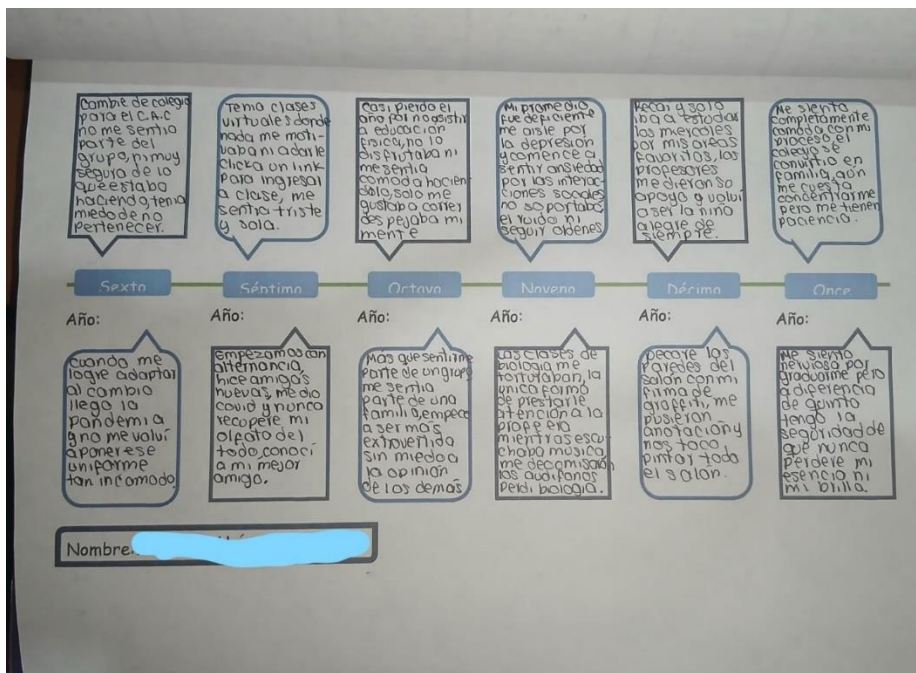 Cambie de colegio
para el C.A.C
no me sentia
parte del
grupo, ni muy
segura de lo
que estaba
haciendo, tenia
miedo de no
pertenecer.
Tenia clases
virtuales donde
nada me moti-
vaba ni a darle
click a un link
para ingresar
a clase, me
sentia triste
y sola.
Casi pierdo el
año por no asistir
a educacion
fisica, no lo
disfrutaba ni
me sentia
comoda hacien
dolo, solo me
gustaba correr
despejaba mi
mente
Mi promedio
fue deficiente
me aisle por
la depresion
y comence a
sentir ansiedad
por las interac-
ciones sociales
no soportaba
el ruido ni
seguir ordenes
Recai y solo
iba a estudiar
los miercoles
por mis areas
favoritas, los
profesores
me dieron su
apoyo y volvi
a ser la niña
alegre de
siempre.
Me siento
completamente
comoda con mi
proceso el
colegio se
convirtio en
familia, aun
me cuesta
concentrarme
pero me tienen
paciencia.
Sexto
Séptimo
Octavo
Noveno
Décimo
Once
Año:
Año:
Año:
Año:
Año:
Año:
Cuando me
logre adaptar
al cambio
llego la
pandemia
y no me volvi
a poner ese
uniforme
tan incomodo
Empezamos con
alternancia,
hice amigos
nuevos, me dio
covid y nunca
recupere mi
olfato del
todo, conoci
a mi mejor
amigo.
Mas que sentirme
parte de un grupo
me sentia
parte de una
familia, empece
a ser mas
extrovertida
sin miedo a
la opinion
de los demas
Las clases de
biologia me
torturaban, la
unica forma
de prestarle
atencion a la
profe era
mientras escu
chaba musica,
me decomisaron
los audifonos
Perdi biologia.
Decore las
paredes del
salon con mi
firma de
graffiti, me
pusieron
anotacion y
nos toco,
pintar todo
el salon.
Me siento
nerviosa por
graduarme pero
a diferencia
de quinto
tengo la
seguridad de
que nunca
perdere mi
esencia ni
mi brillo.
Nombre: